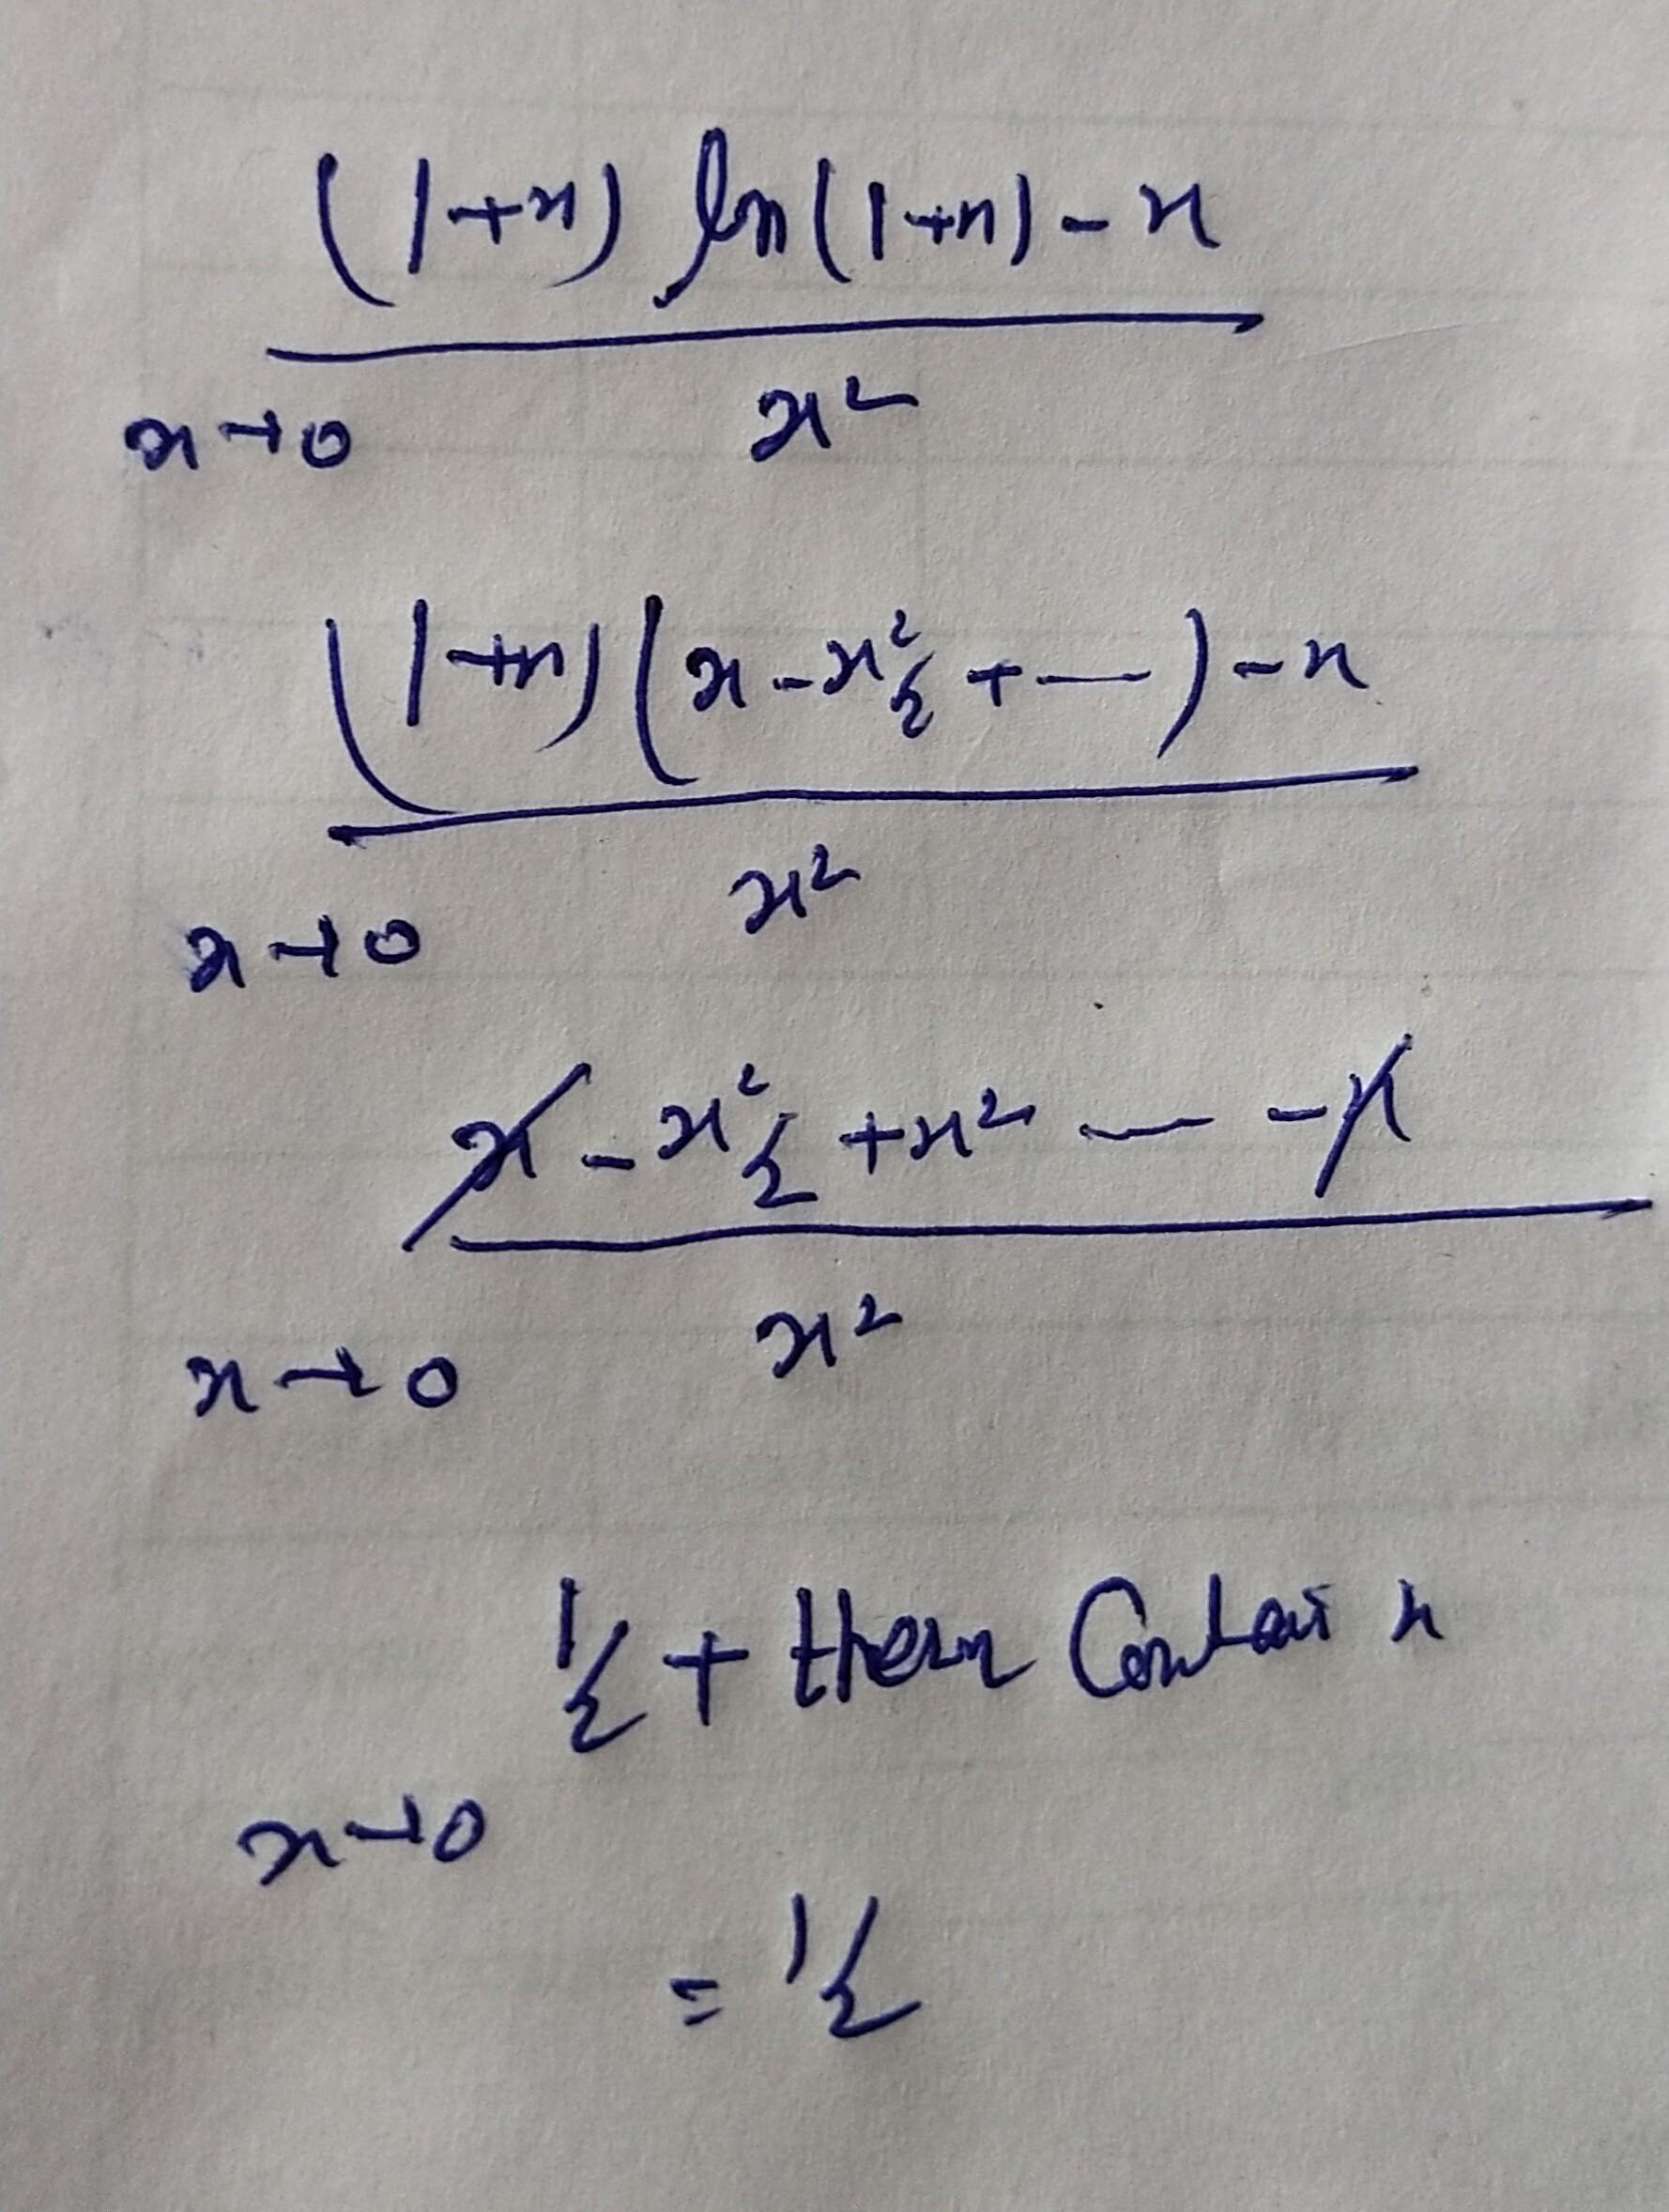 (1+x) ln(1+x) - x
x→0 x²
(1+x) (x - x²/2 + ---) - x
x→0 x²
x - x²/2 + x² --- - x
x→0 x²
1/2 + therm Contai x
x→0
= 1/2